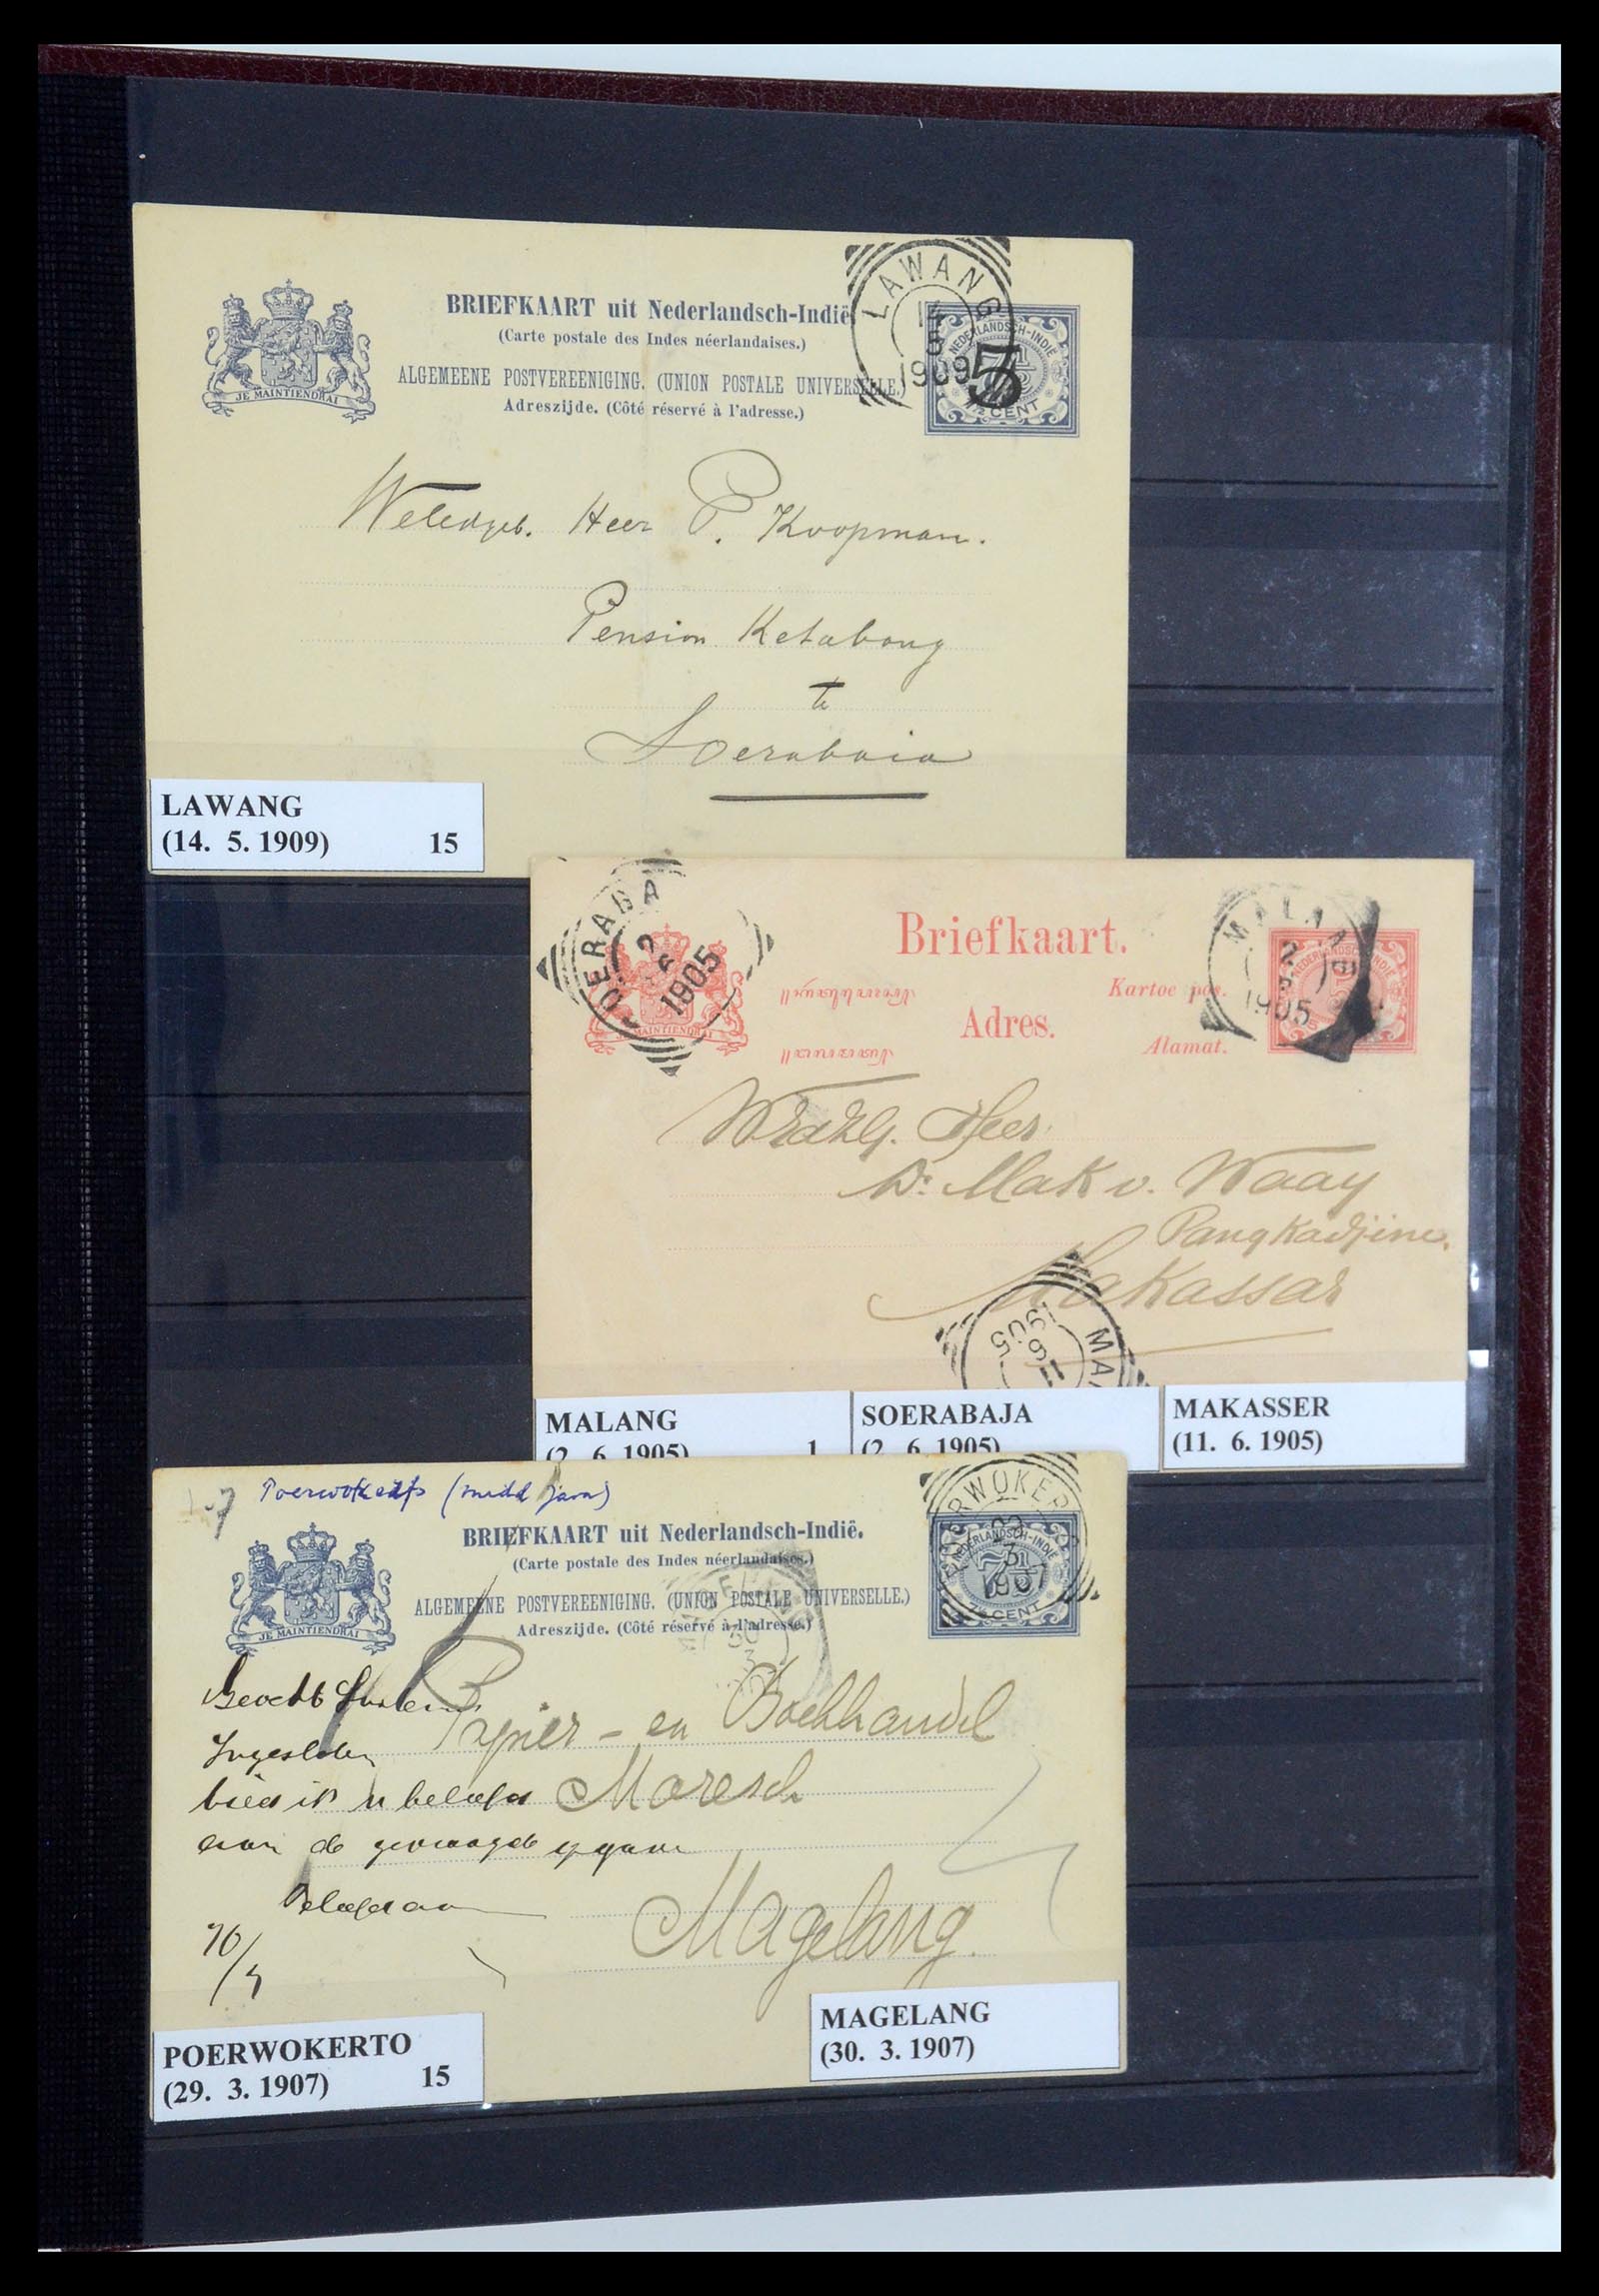 BRIEFKAART uit Nederlandsch-Indië
(Carte postale des Indes néerlandaises.)
ALGEMEENE POSTVEREENIGING. (UNION POSTALE UNIVERSELLE.)
Adreszijde. (Côté réservé à l'adresse.)
JE MAINTIENDRAI
LAWANG
14
5
1909
NEDERLANDSCH-INDIË
5
7½ CENT
Weledgeb. Heer P. Koopman.
Pension Ketabang
te
Soerabaia
LAWANG
(14. 5. 1909) 15
SOERABA
2
6
1905
MAINTIENDRAI
Briefkaart.
Kartoe pos.
Adres.
Alamat.
MALANG
2
6
1905
NEDERLANDSCH-INDIË
Heer
Mak v. Waay
Pangkadjine.
Makassar
11
6
1905
MA
MALANG
(2. 6. 1905) 1
SOERABAJA
(2. 6. 1905)
MAKASSER
(11. 6. 1905)
(midd java)
BRIEFKAART uit Nederlandsch-Indië.
(Carte postale des Indes néerlandaises.)
ALGEMEENE POSTVEREENIGING. (UNION POSTALE UNIVERSELLE.)
Adreszijde. (Côté réservé à l'adresse.)
JE MAINTIENDRAI
POERWOKERTO
3
1907
NEDERLANDSCH-INDIË
7½
7½ CENT
30
3
Papier - en Boekhandel
Maresch
Magelang.
aan de gevraagde opgave
MAGELANG
(30. 3. 1907)
POERWOKERTO
(29. 3. 1907) 15